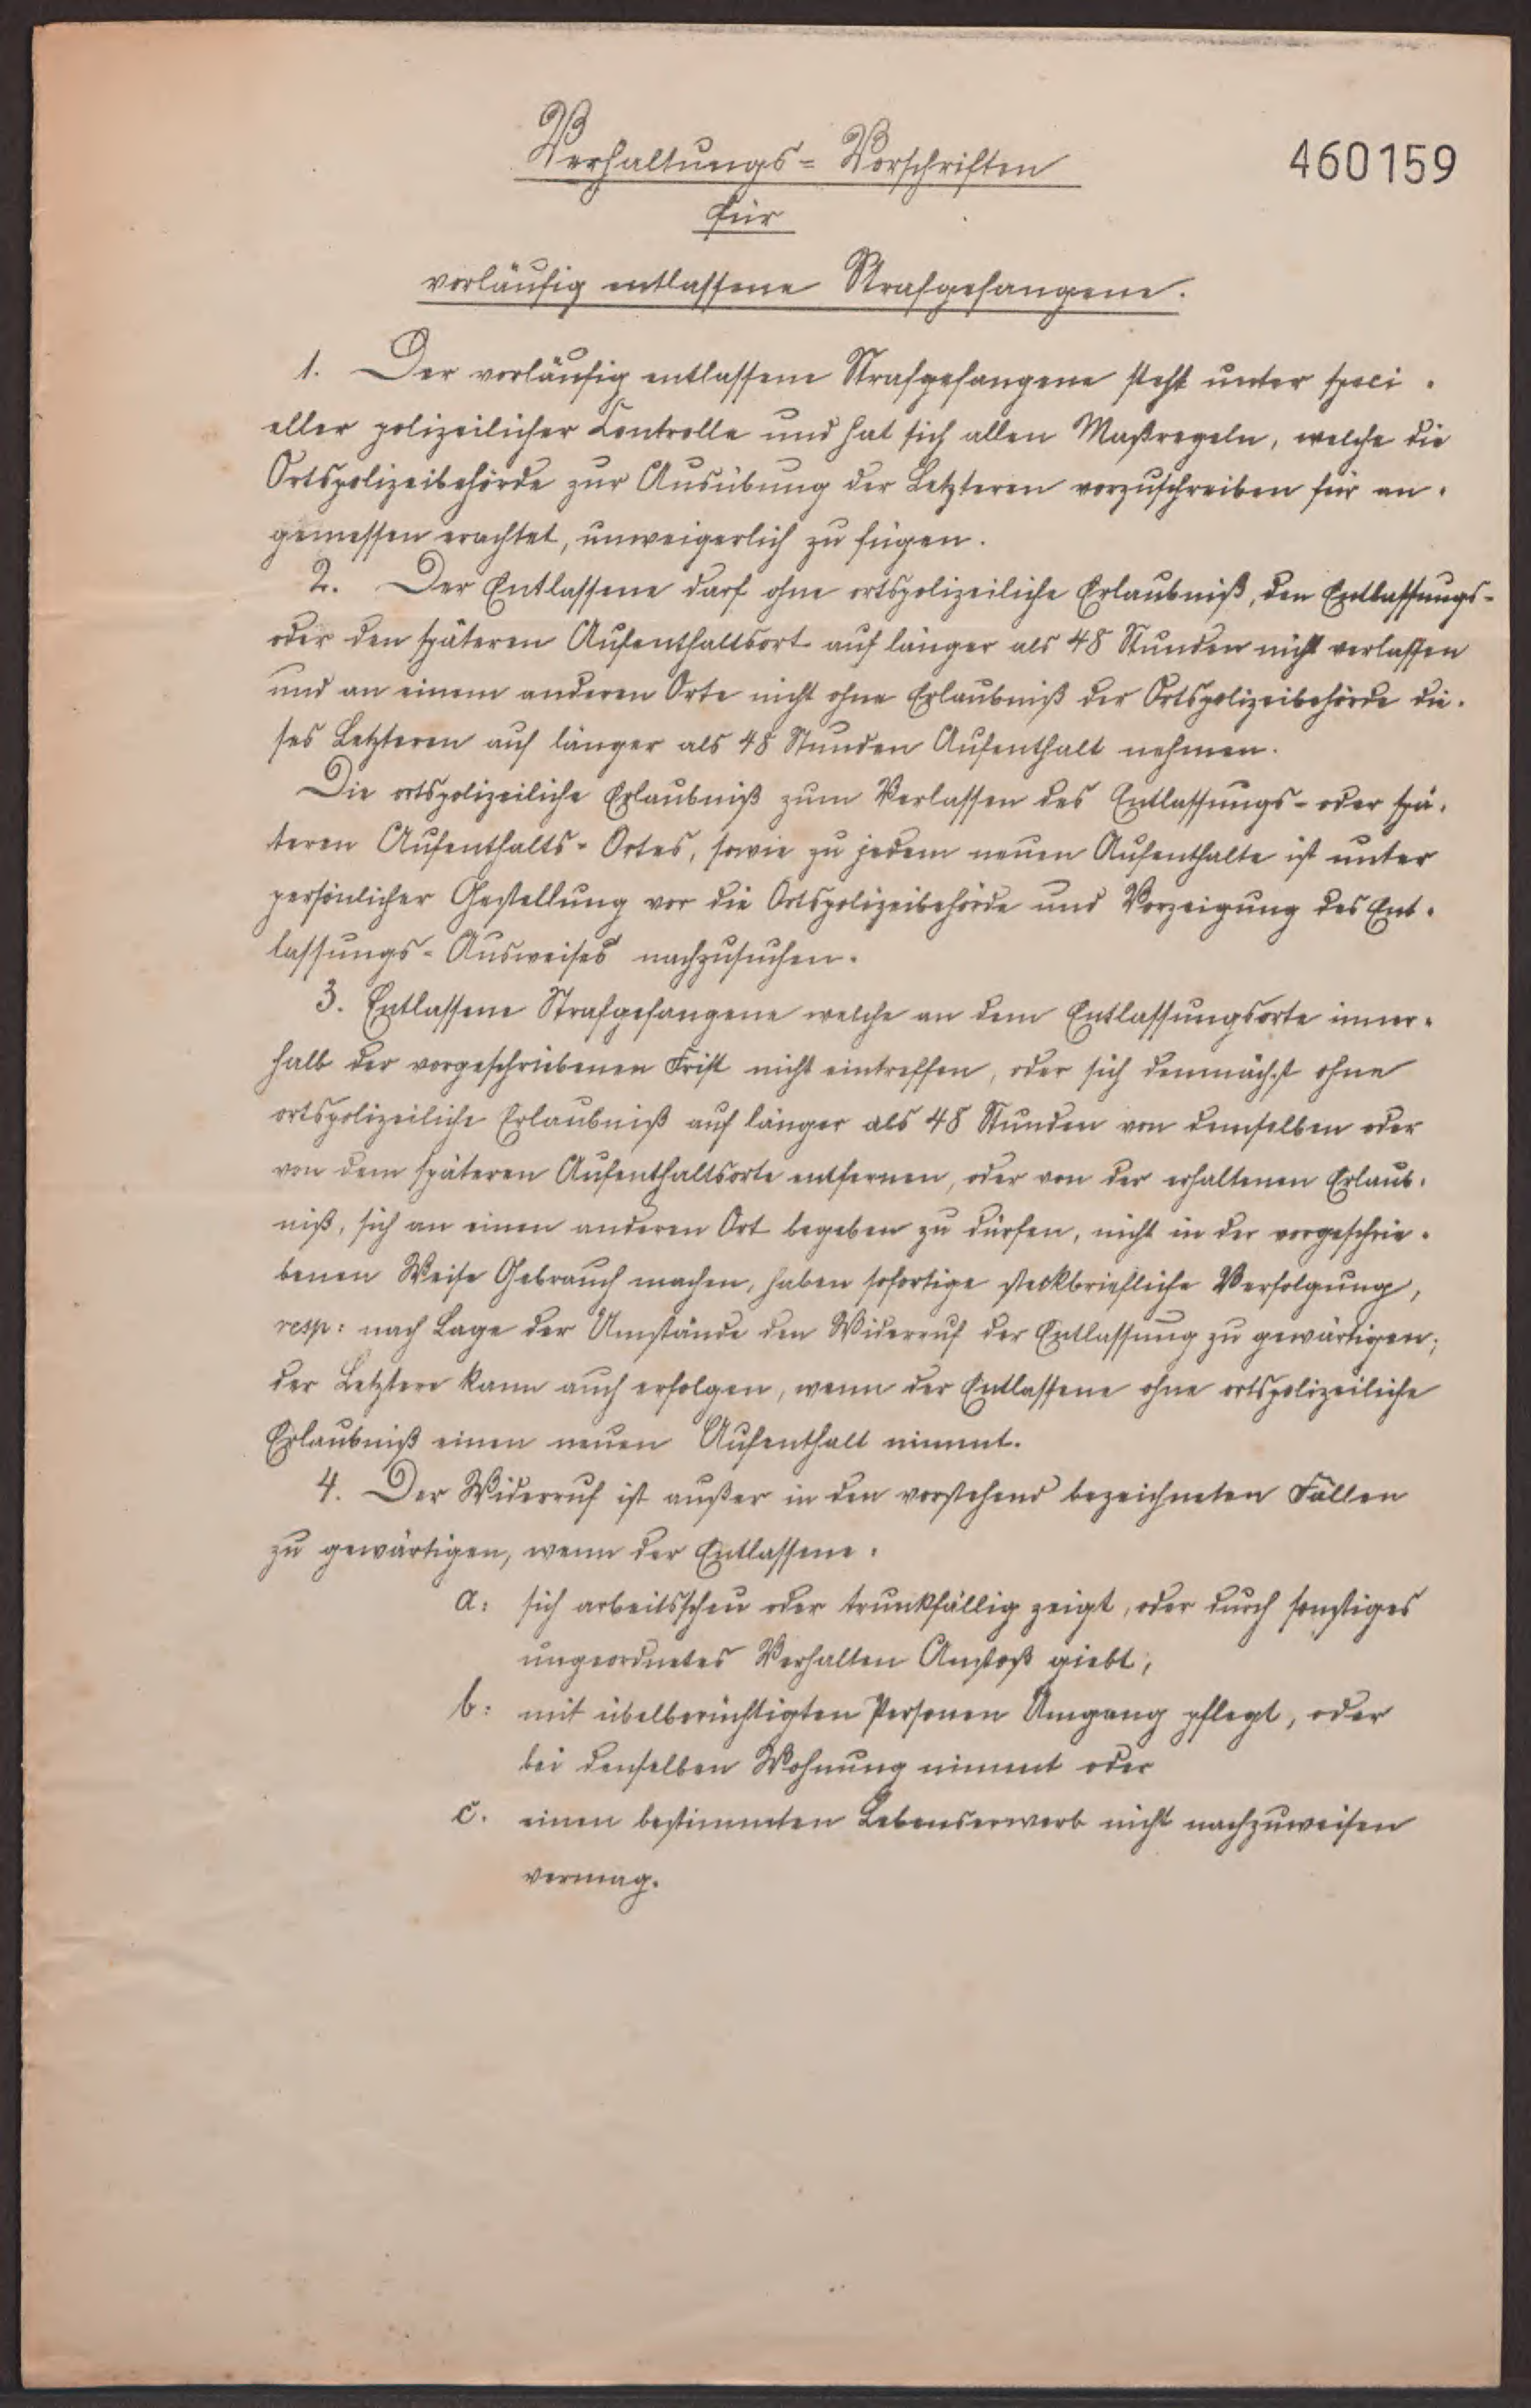 Verhaltungs-Vorschriften
460159
für
vorläufig entlassene Strafgefangene.
1. Der vorläufig entlassene Strafgefangene steht unter speci-
eller polizeilicher Controlle und hat sich allen Maßregeln, welche die
Ortspolizeibehörde zur Ausübung der Letzteren vorzuschreiben für an-
gemessen erachtet, unweigerlich zu fügen.
2. Der Entlassene darf ohne ortspolizeiliche Erlaubniß, den Entlassungs-
oder den späteren Aufenthaltsort auf länger als 48 Stunden nicht verlassen
und an einem anderen Orte nicht ohne Erlaubniß der Ortspolizeibehörde die-
ses Letzteren auf länger als 48 Stunden Aufenthalt nehmen.
Die ortspolizeiliche Erlaubniß zum Verlassen des Entlassungs- oder spä-
teren Aufenthalts-Ortes, sowie zu jedem neuen Aufenthalte ist unter
persönlicher Gestellung vor die Ortspolizeibehörde und Vorzeigung des Ent-
lassungs-Ausweises nachzusuchen.
3. Entlassene Strafgefangene welche an dem Entlassungsorte inner-
halb der vorgeschriebenen Frist nicht eintreffen, oder sich demnächst ohne
ortspolizeiliche Erlaubniß auf länger als 48 Stunden von demselben oder
von dem späteren Aufenthaltsorte entfernen, oder von der erhaltenen Erlaub-
niß, sich an einen anderen Ort begeben zu dürfen, nicht in der vorgeschrie-
benen Weise Gebrauch machen, haben sofortige steckbriefliche Verfolgung,
resp: nach Lage der Umstände den Widerruf der Entlassung zu gewärtigen;
der Letztere kann auch erfolgen, wenn der Entlassene ohne ortspolizeiliche
Erlaubniß einen neuen Aufenthalt nimmt.
4. Der Widerruf ist außer in den vorstehend bezeichneten Fällen
zu gewärtigen, wenn der Entlassene.
a: sich arbeitsscheu oder trunkfällig zeigt, oder durch sonstiges
ungeordnetes Verhalten Anstoß giebt;
b: mit übelberüchtigten Personen Umgang pflegt, oder
bei denselben Wohnung nimmt oder
c. einen bestimmten Lebenserwerb nicht nachzuweisen
vermag.